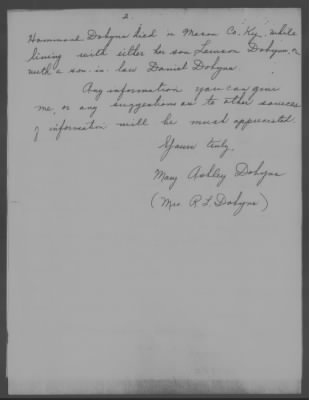 2.
Hammond Dobyns died in Mason Co. Ky. while
living with either her son Lawson Dobyns, or
with a son-in-law Daniel Dobyns
Any information you can give
me, or any suggestions as to other sources
of information will be much appreciated.
Yours truly,
Mary Ashley Dobyns
(Mrs. R. L. Dobyns)